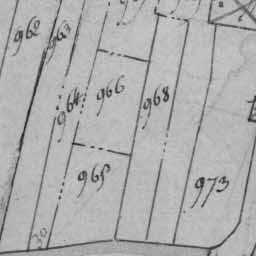 962
963
964
966
968
965
973